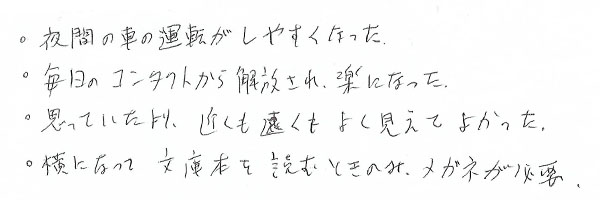 。夜間の車の運転がしやすくなった.
。毎日のコンタクトから解放され、楽になった.
。思っていたより、近くも遠くもよく見えてよかった.
。横になって文庫本を読むときのみ、メガネが必要.